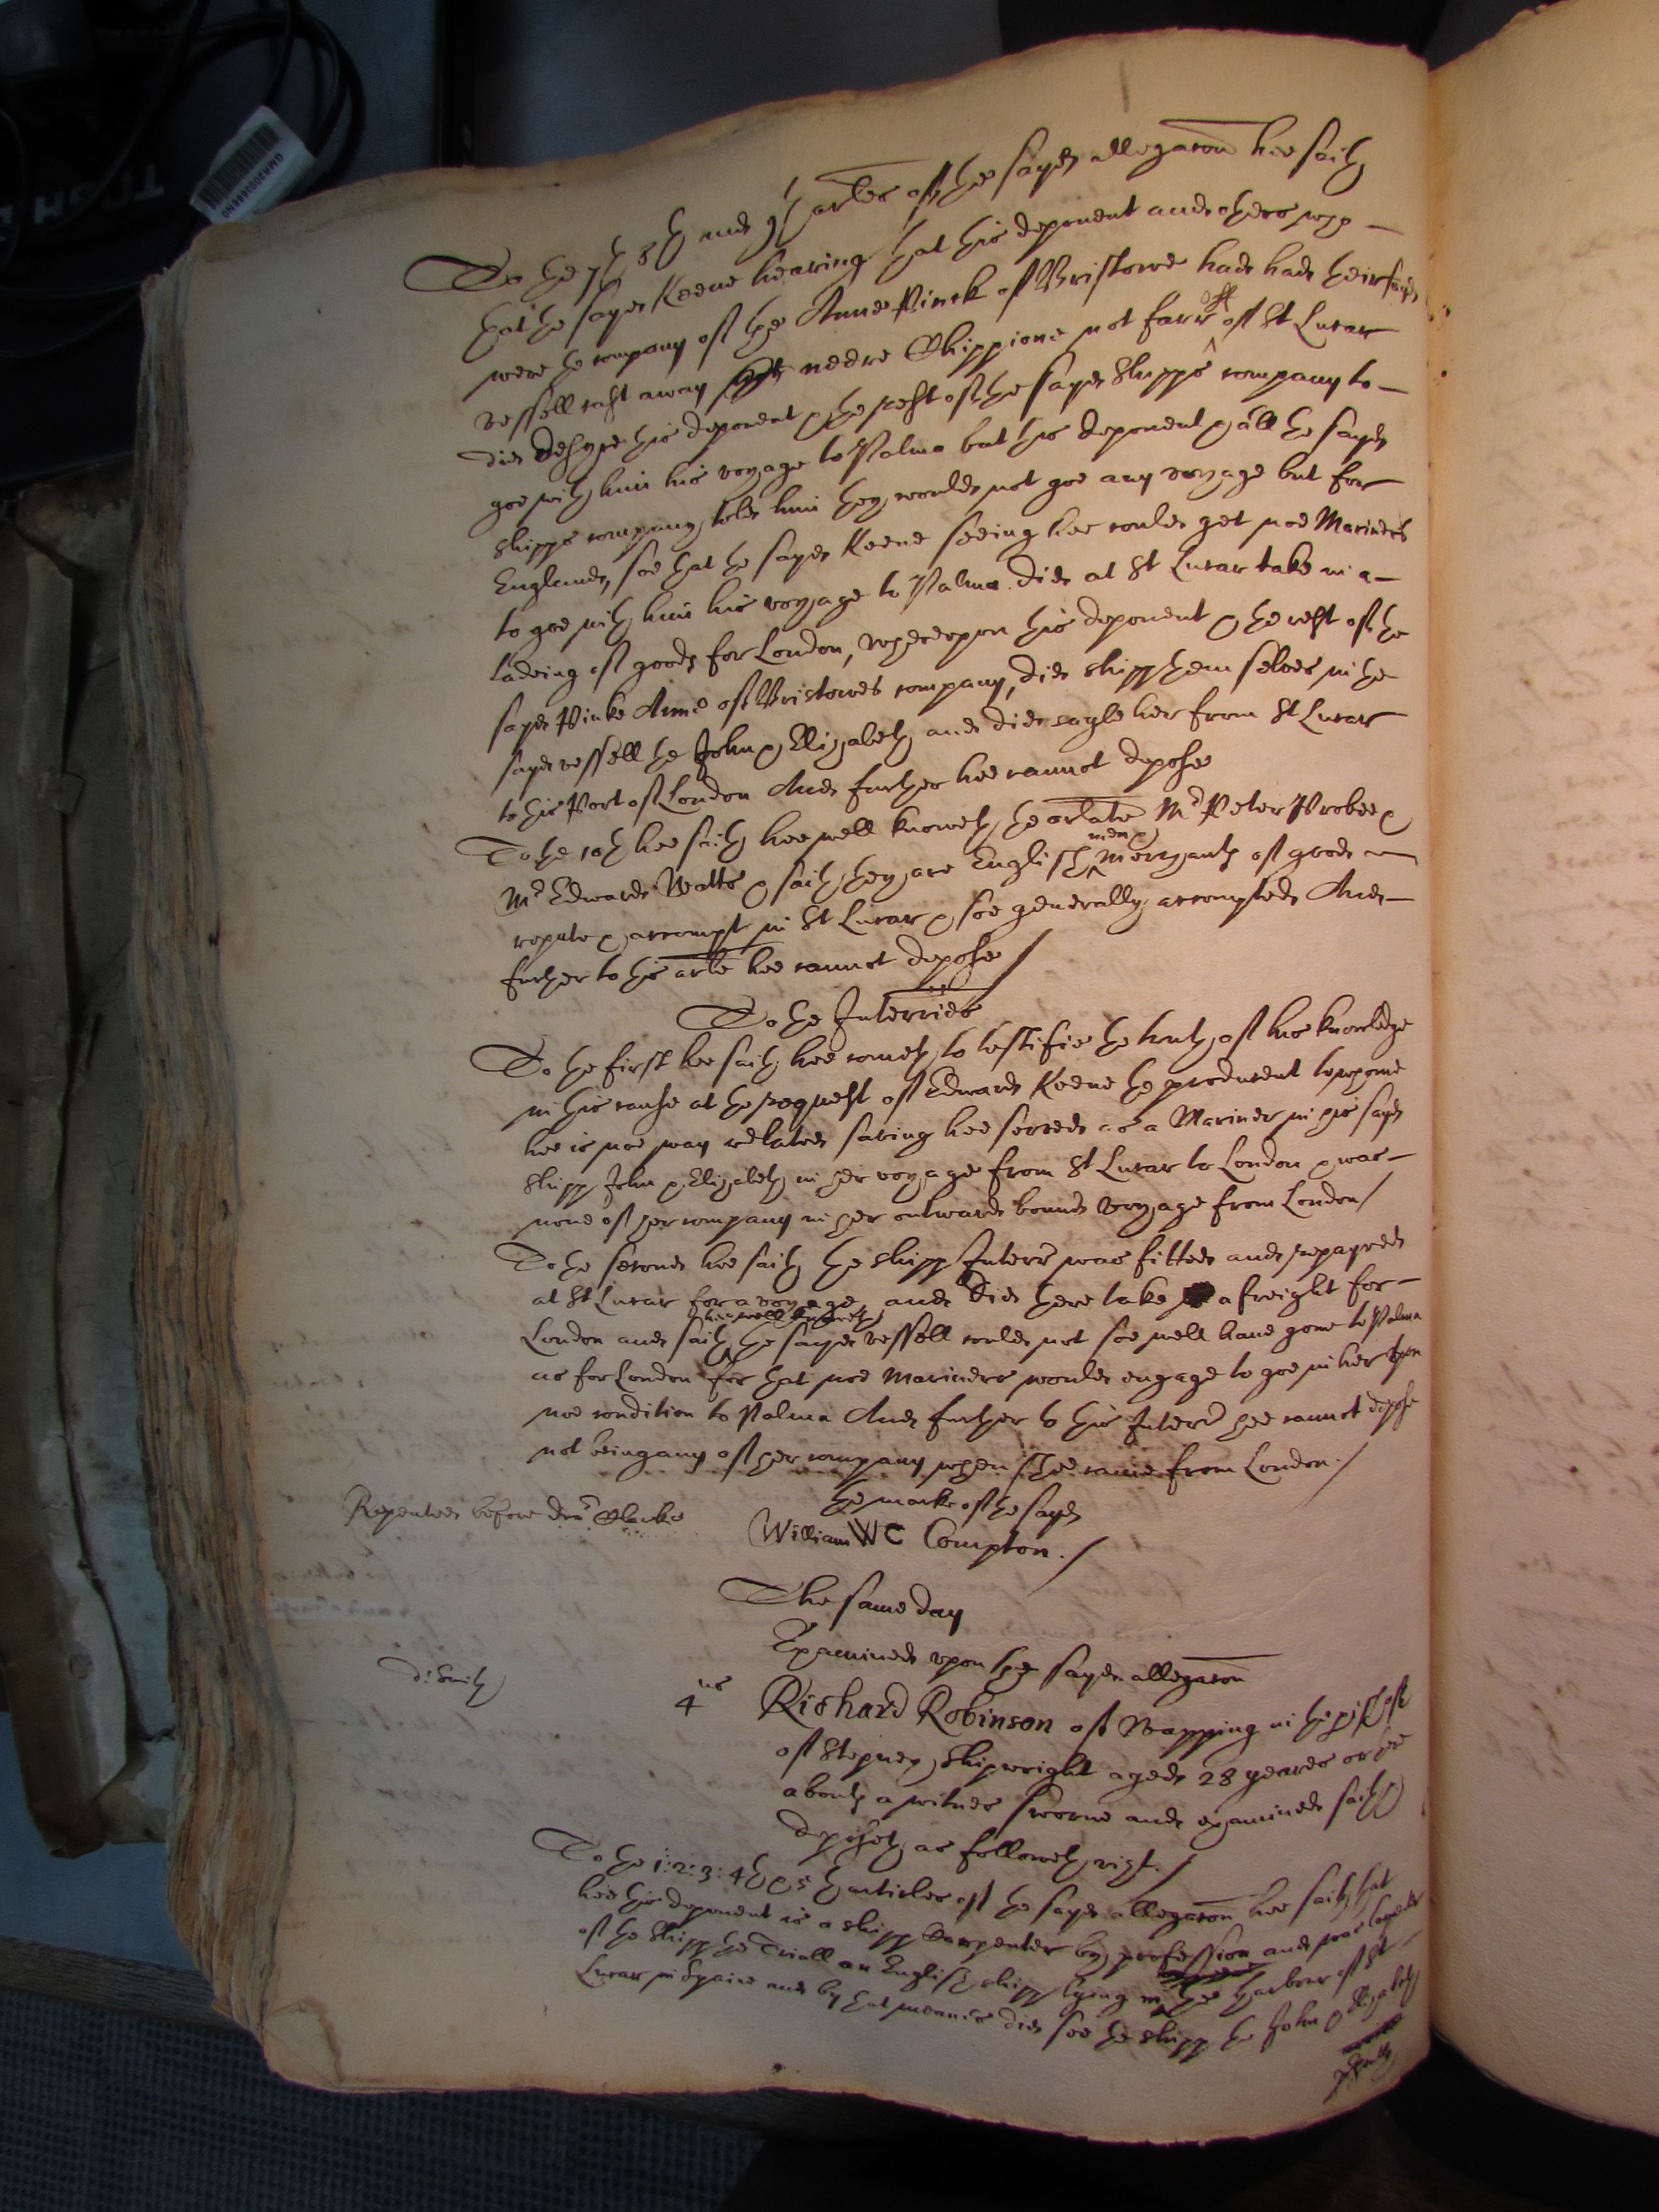 To the 7th 8th and 9th arles of the sayd allegaon hee saith
that the sayd Keene hearing that this deponent and others who
were the company of the Anne Pinck of Bristowe had had their sayd
vessell cast away neere Chippione not farr off of St Lucar
did desyre this deponent & the rest of the sayd shipps company to
goe with him his voyage to Palma but this deponent & all the sayd
shipps company told him they would not goe any voyage but for
England, soe that the sayd Keene seeing hee could get noe Mariners
to goe with him his voyage to Palma did at St Lucar take in a
ladeing of goods for London, whereupon this deponent & the rest of the
sayd Pinke Anne of Bristowes company, did shipp themselves in the
sayd vessell the John & Elizabeth and did sayle her from St Lucar
to this Port of London And further hee cannot depose
To the 10th hee saith hee well knoweth the arlate Mr Peter Probee &
Mr Edward Watts & saith they are English men & Merchants of good
repute & accompt in St Lucar & soe generally accompted And
further to this arle hee cannot depose /
To the Interries
To the first hee saith hee cometh to testifie the truth of his knowledge
in this cause at the request of Edward Keene the producent to whome
hee is noe way related saving hee served as a Mariner in his sayd
shipp John & Elizabeth in her voyage from St Lucar to London & was
none of her company in her outward bound voyage from London /
To the second hee saith the shipp Interr was fitted and repayred
at St Lucar for a voyage and did there take a freight for
London and saith hee well knoweth the sayd vessell could not soe well have gone to Palma
as for London for that noe Mariners would engage to goe in her upon
noe condition to Palma And further to this Interr hee cannot depose
not being any of her company when shee came from London. /
Repeated before Dr Clerke
the marke of the sayd
William WC Compton. /
The same day
Examined upon the sayd allegaon
dr Smith
4us Richard Robinson of Wapping in the pish of
of Stepney Shipwright aged 28 yeares or there
abouts a witnes sworne and examined saith &
deposeth as followeth vizt. /
To the 1: 2: 3: 4th & 5th articles of the sayd allegaon hee saith that
hee this deponent is a shipp Carpenter by profession and was Carpenter
of the shipp the Triall an English shipp lying in the harbour of St
Lucar in Spaine and by that meanes did see the shipp the John & Elizabeth